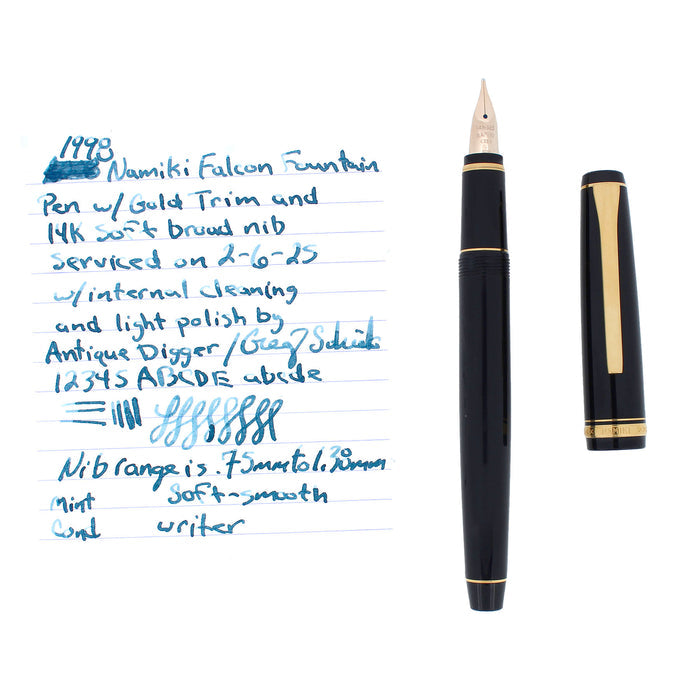 1998
Namiki Falcon Fountain
Pen w/ Gold Trim and
14K soft broad nib
serviced on 2-6-25
w/internal cleaning
and light polish by
Antique Digger / Greg
12345 ABCDE abcde
Nib range is .75mm to 1.30mm
Mint soft-smooth
Cond writer